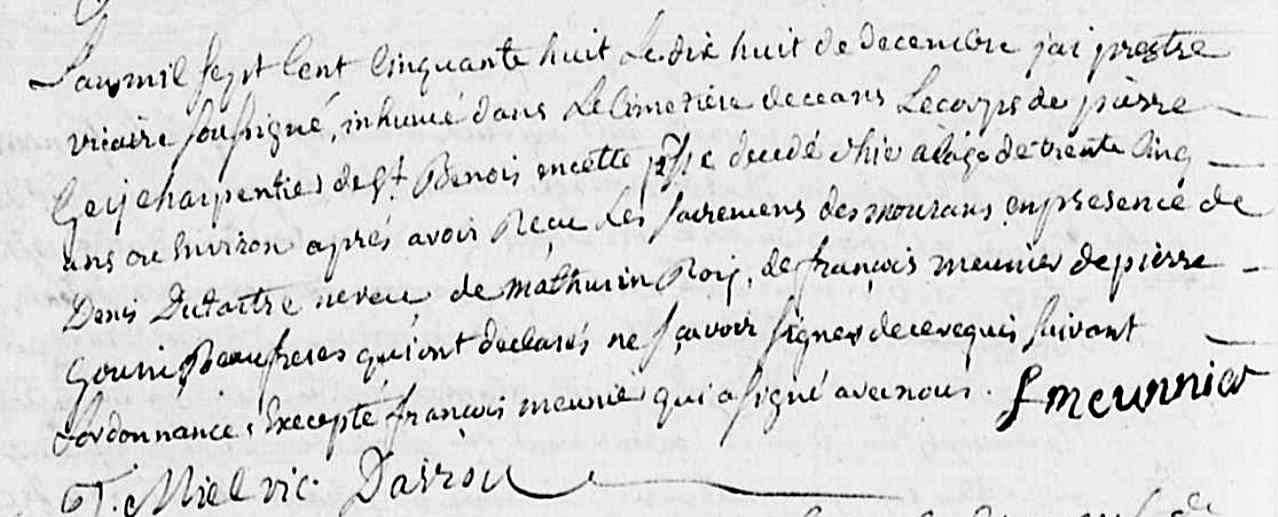 L'an mil sept cent cinquante huit le dix huit de decembre j'ai prestre
vicaire soussigné, inhumé dans le cimetiere de ceans le corps de pierre
charpentier de St Benois en cette psse decedé d'hier a l'age de trente cinq
ans ou environ aprés avoir reçu les sacremens des mourans en presence de
Denis neveu, de mathurin Roy, de françois meunier de pierre
Gouin Beaufreres qui ont declarés ne sçavoir signer de ce requis suivant
l'ordonnance, Excepté françois meunier qui a signé avec nous. f meunnier
vic. Darrou